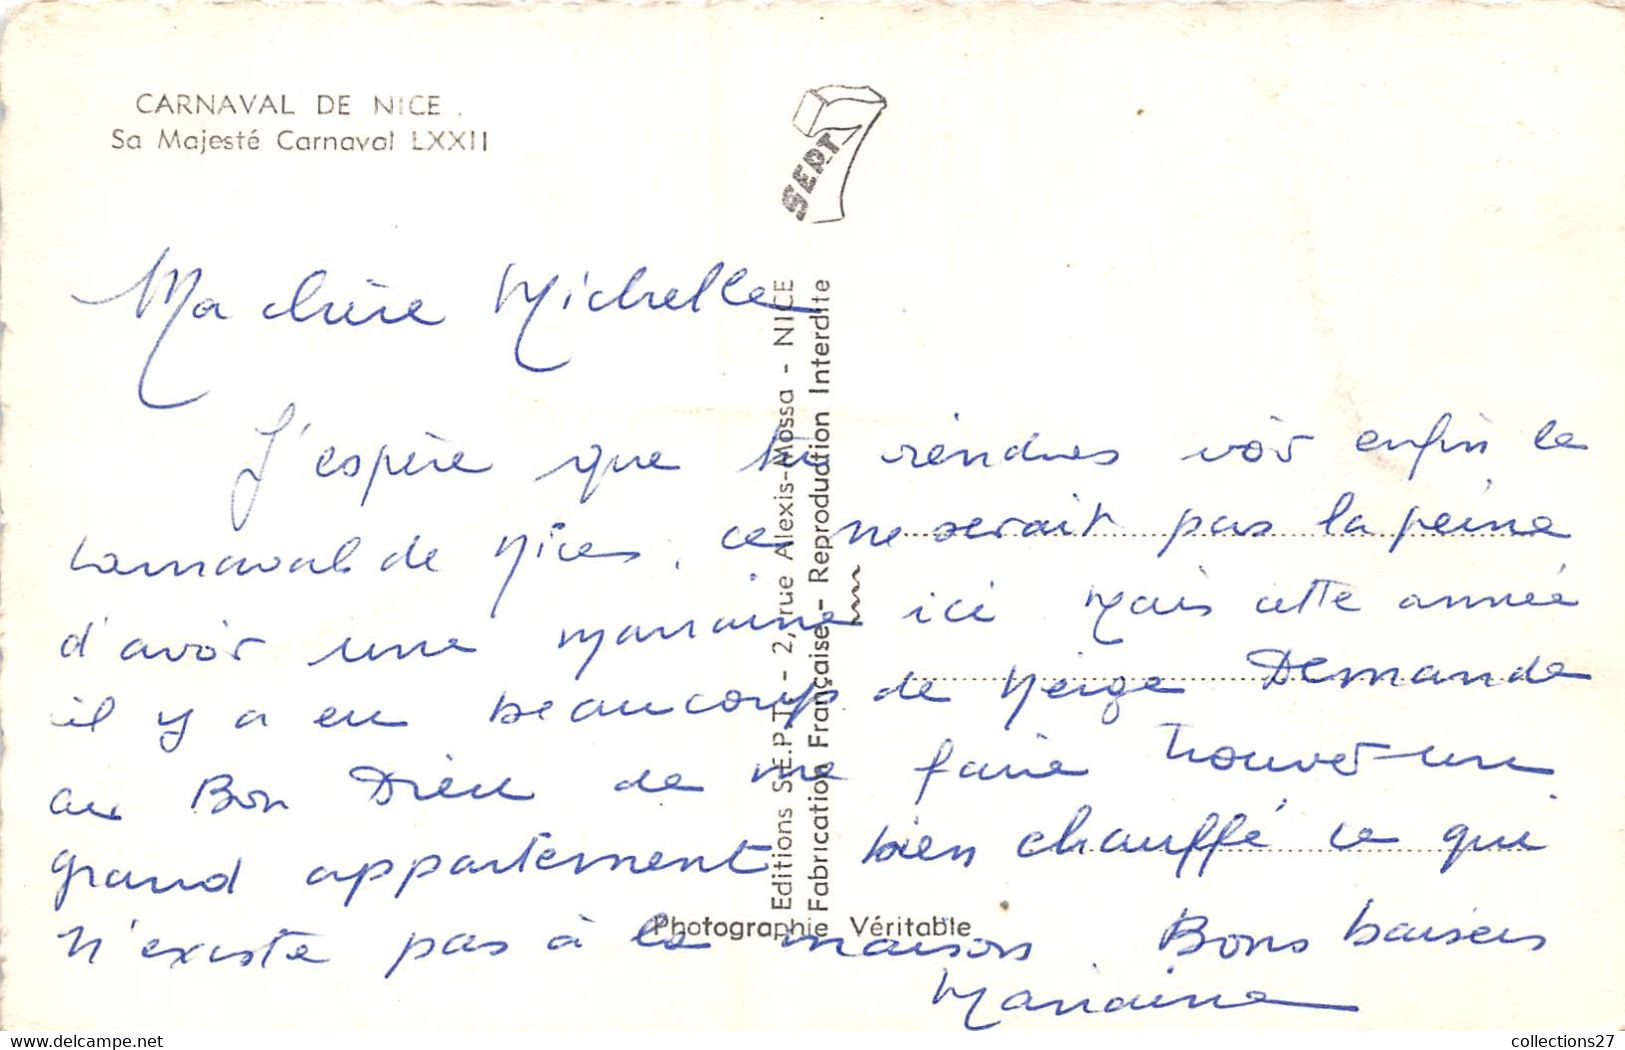 CARNAVAL DE NICE.
Sa Majesté Carnaval LXXII
SEPT
Editions S.E.P.T. - 2, rue Alexis-Mossa - NICE
Fabrication Française - Reproduction Interdite
Photographie Véritable
Ma chère Michelle
J'espère que tu viendras voir enfin le
Carnaval de Nice, ce ne serait pas la peine
d'avoir une marraine ici Mais cette année
il y a eu beaucoup de Neige Demande
au Bon Dieu de me faire trouver un
grand appartement bien chauffé ce qui
n'existe pas à la maison. Bons baisers
Marraine
collections27